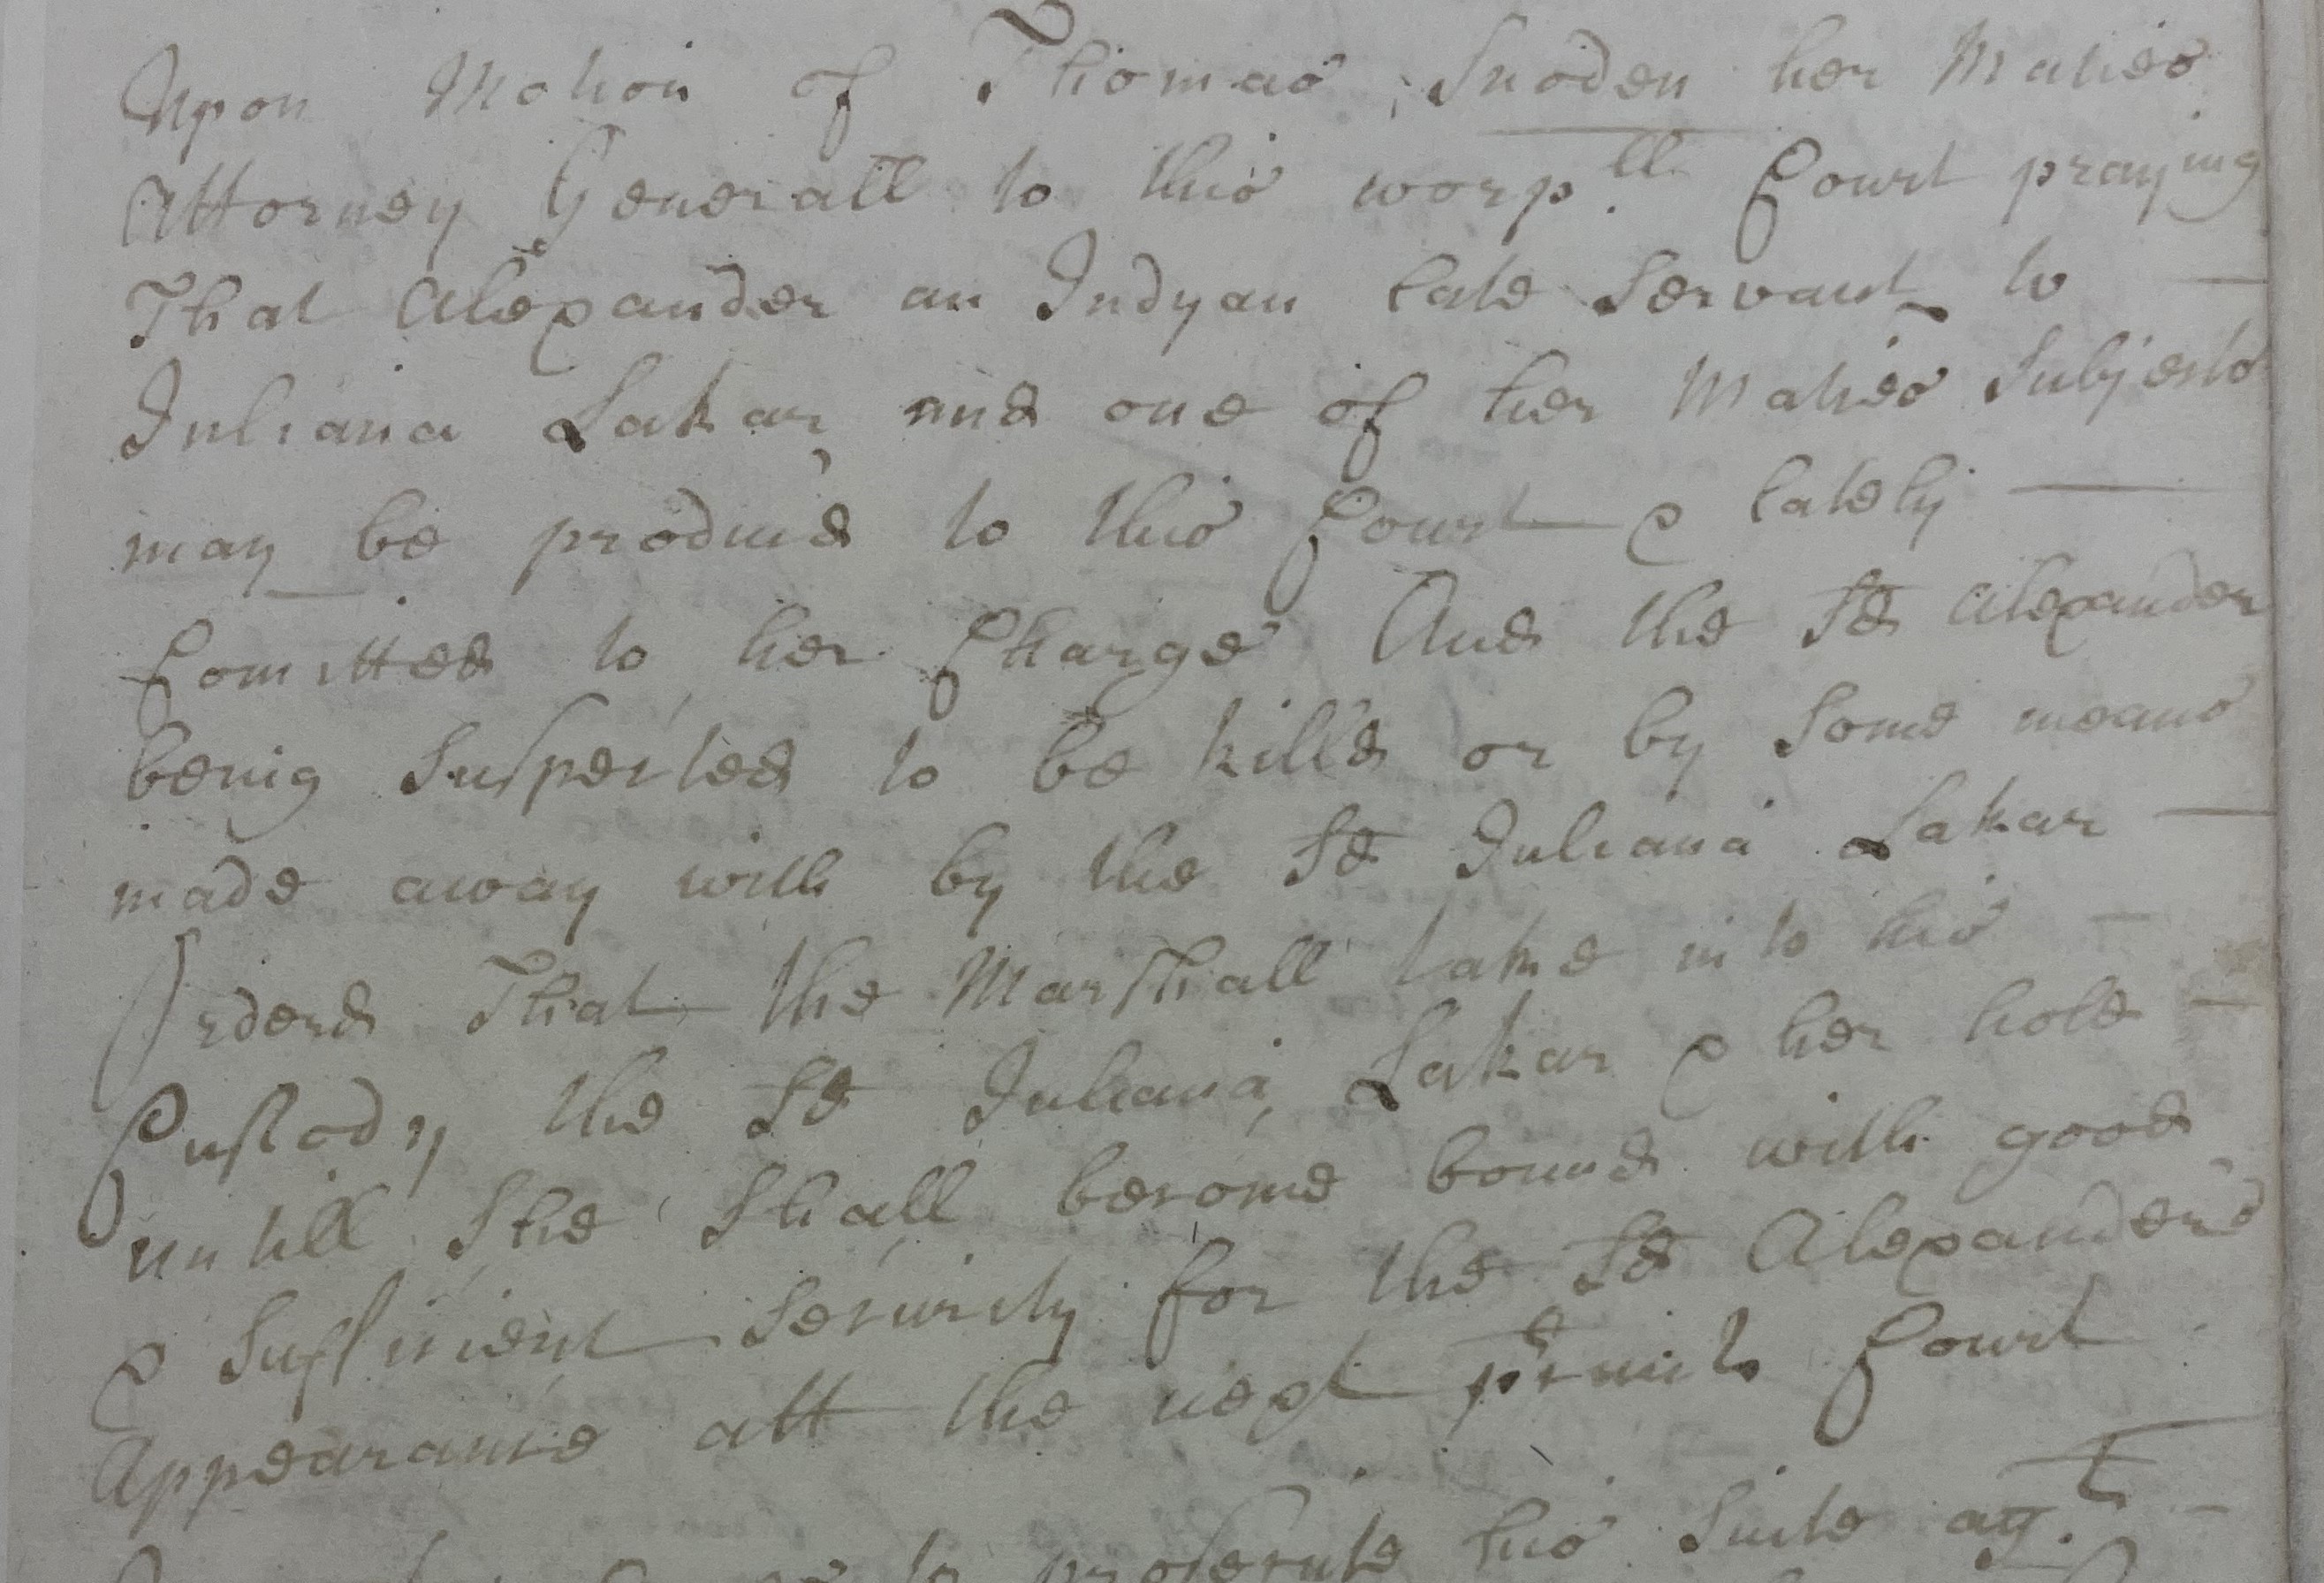 Upon Motion of Thomas Snoden her Maties
Attorney Generall to this worp.ll Court praying
That Alexander an Indyan late Servant to
Juliana Lakar and one of her Maties Subjects
may be produced to this Court & lately
Comitted to her Charge And the Sd Alexander
being Suspected to be kill'd or by Some means
made away with by the Sd Juliana Lakar
Orderd That the Marshall take into his
Custody the Sd Juliana Lakar & her hold
untill She Shall become bound with good
& Sufficient Security for the Sd Alexanders
Appearance att the next Court
to prosecute his Suite agt.